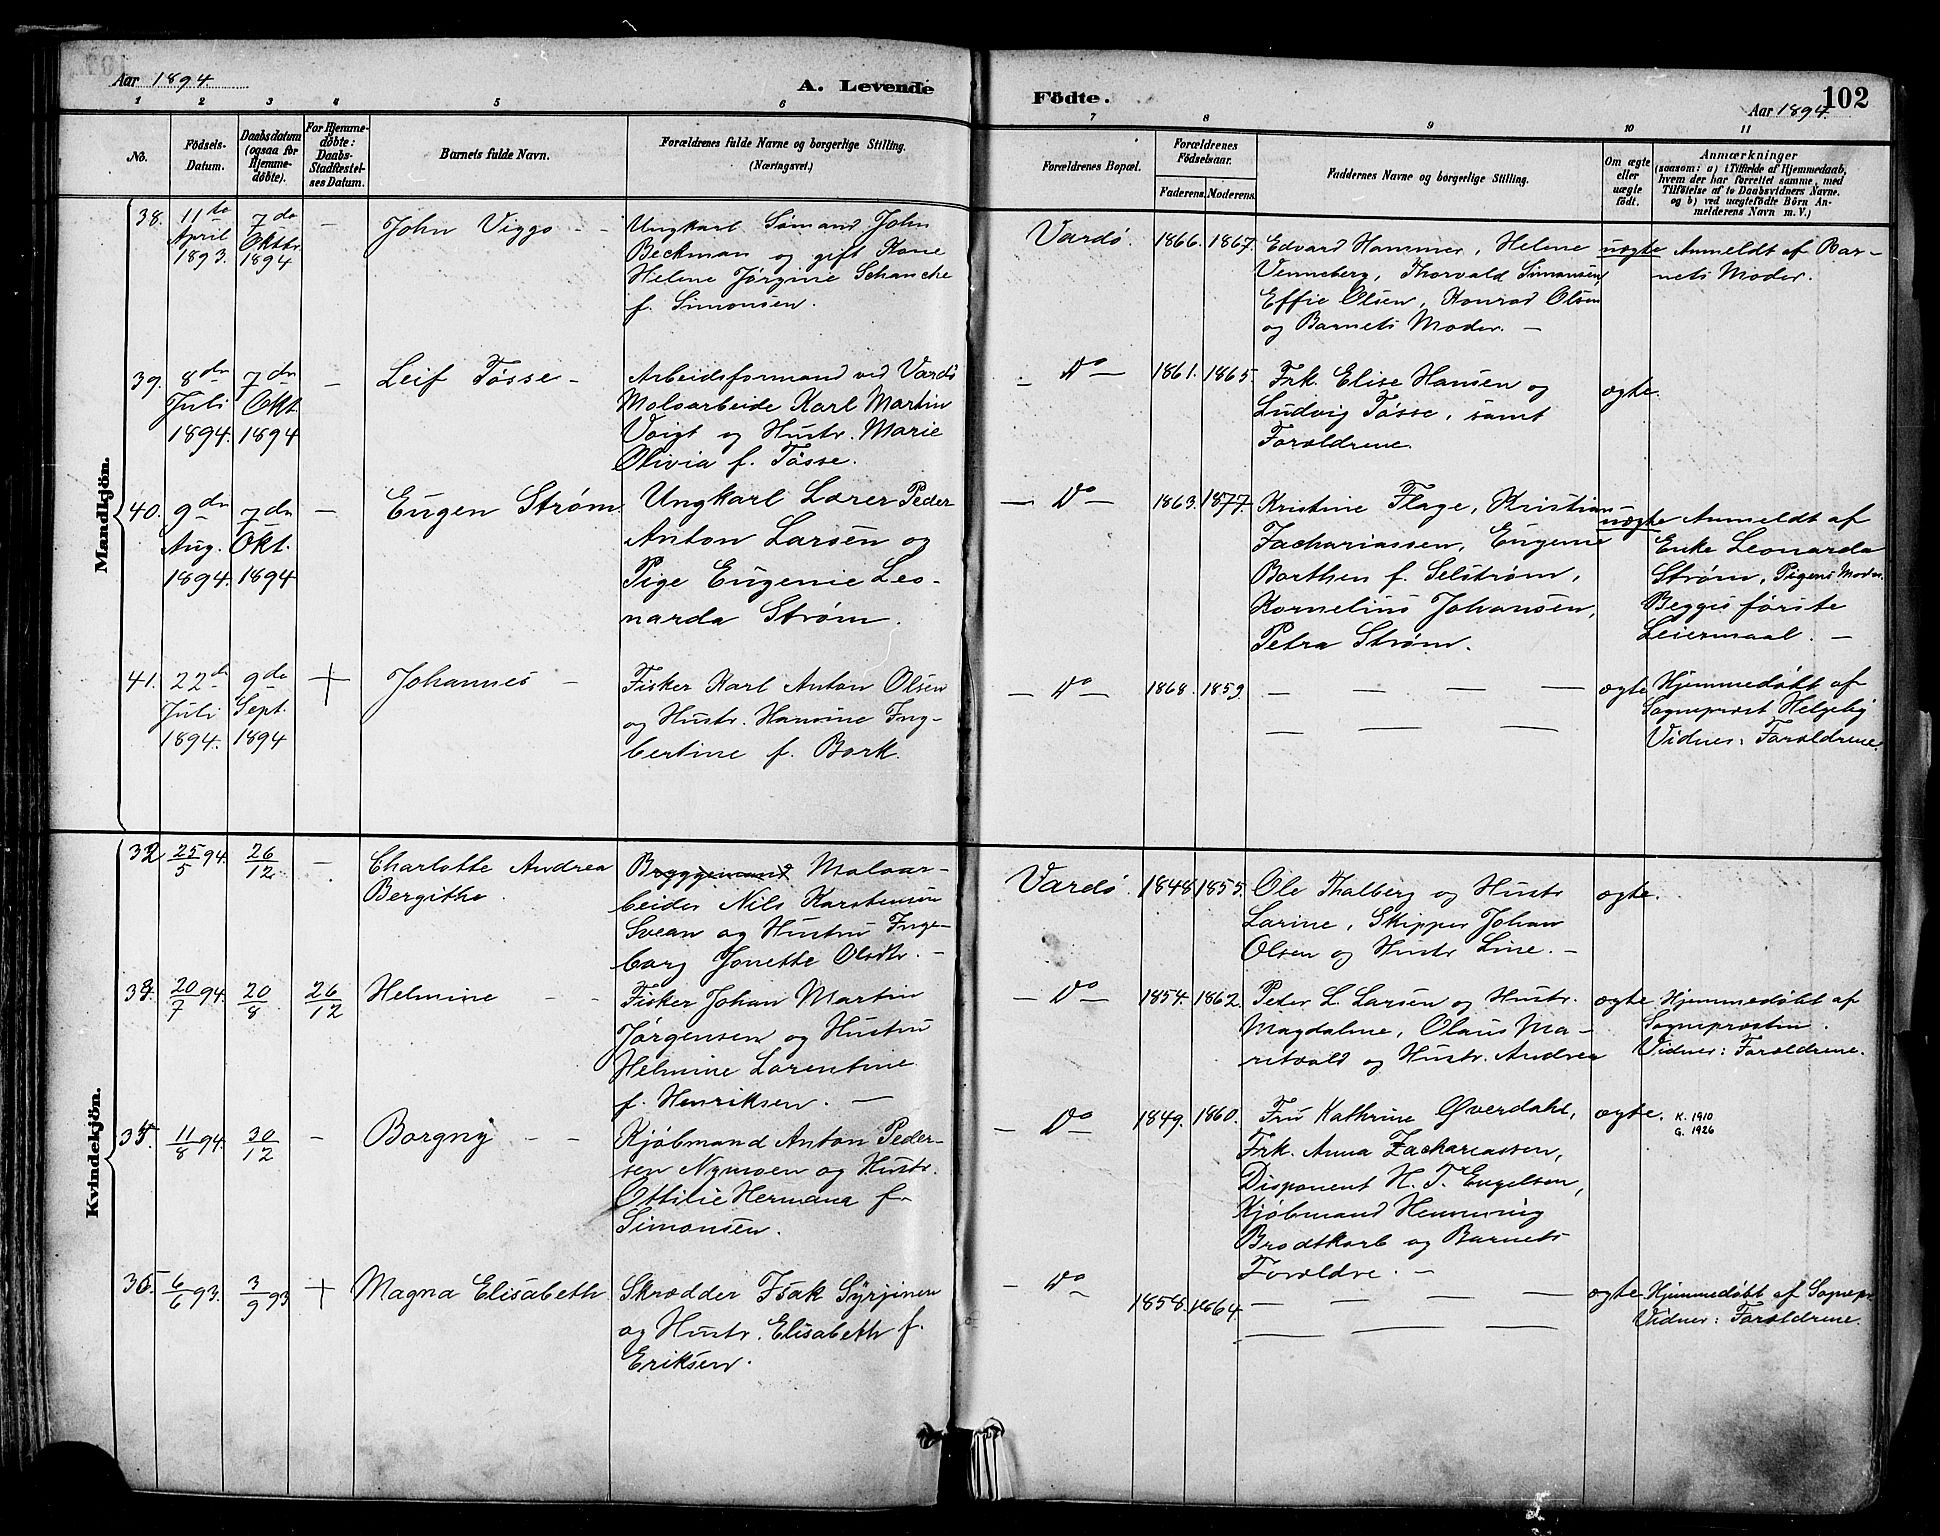 Aar 1894.
A. Levende
Födte.
Aar 1894.
102
1 2 3 4 5 6 7 8 9 10 11
No.
Födsels-
Datum.
Daabsdatum
(ogsaa for
Hjemme-
döbte).
For Hjemme-
döbte:
Daabs-
Stadfæstel-
ses Datum.
Barnets fulde Navn.
Forældrenes fulde Navne og borgerlige Stilling.
(Næringsvei.)
Forældrenes Bopæl.
Forældrenes
Födselsaar.
Faderens.
Moderens.
Faddernes Navne og borgerlige Stilling.
Om ægte
eller
uægte
födt.
Anmærkninger
(saasom: a) i Tilfælde af Hjemmedaab,
hvem der har forrettet samme, med
Tilföielse af to Daabsvidners Navne.
og b) ved uægtefödte Börn An-
melderens Navn m. V.)
Mandkjön.
38.
11te
April
1893.
7de
Oktbr
1894
—
John Viggo -
Ungkarl Sømand John
Beckman og gift Kone
Helene Jørgine Schanche
f. Simonsen.
Vardö.
1866.
1867.
Edvard Hammer, Helene
Venneberg, Thorvald Simonsen,
Effie Olsen, Konrad Olsen
og Barnets Moder. —
uægte
Anmeldt af Bar-
nets Moder.
39.
8de
Juli
1894.
7de
Okt.
1894
—
Leif Tösse -
Arbeidsformand ved Vardö
Moloarbeide Karl Martin
Voigt og Hustr. Marie
Olivia f. Tösse.
— Do —
1861.
1865.
Frk. Elise Hansen og
Ludvig Tösse, samt
Forældrene.
ægte.
40.
9de
Aug.
1894.
7de
Okt.
1894
—
Eugen Strøm
Ungkarl Lærer Peder
Anton Larsen og
Pige Eugenie Leo-
narda Strøm.
— Do —
1863.
1877.
Kristine Flage, Kristian
Zachariassen, Eugenie
Barthsen f. Selstrøm,
Kornelius Johansen,
Petra Strøm.
uægte
Anmeldt af
Enke Leonarda
Strøm, Pigens Moder.
Begges förste
Leiermaal. —
41.
22de
Juli
1894.
9de
Sept.
1894
+
Johannes -
Fisker Karl Anton Olsen
og Hustr. Hansine Ing-
bertine f. Bork.
— Do —
1868.
1859.
— — — —
— — —
ægte
Hjemmedøbt af
Sogneprest Helgeby
Vidner: Forældrene.
Kvindekjön.
32
25/5 94.
26/12
—
Charlotte Andrea
Bergitha.
Bryggemand Moloar-
beider Nils Karstensen
Svean og Hustru Inge-
borg Jonette Olsdtr. —
Vardö.
1848.
1855.
Ole Thalberg og Hustr
Larine, Skipper Johan
Olsen og Hustr Line. —
ægte.
34.
20/7 94.
20/8
26/12
Helmine - -
Fisker Johan Martin
Jørgensen og Hustru
Helmine Lorentine
f. Henriksen. —
— Do —
1854.
1862.
Peter L. Larsen og Hustr.
Magdalene, Olaus Ma-
ritvold og Hustr. Andrea
ægte
Hjemmedøbt af
Sognepræsten.
Vidner: Forældrene.
35.
11/8 94.
30/12
-
Borgny - -
Kjøbmand Anton Peder-
sen Nymoen og Hustr.
Ottilie Hermana f.
Simonsen.
— Do —
1849.
1860.
Fru Kathrine Øverdahl,
Frk. Anna Zachariassen,
Disponent H. T. Engelsen,
Kjøbmand Henning
Brodtkorb og Barnets
Forældre. —
ægte.
K. 1910
G. 1926
36.
6/6 93.
3/9 93
+
Magna Elisabeth
Skrædder Isak Syrjinen
og Hustr. Elisabeth f.
Eriksen.
— Do —
1858.
1864.
— — — —
— — —
ægte
Hjemmedøbt af Sognepr
Vidner: Forældrene.